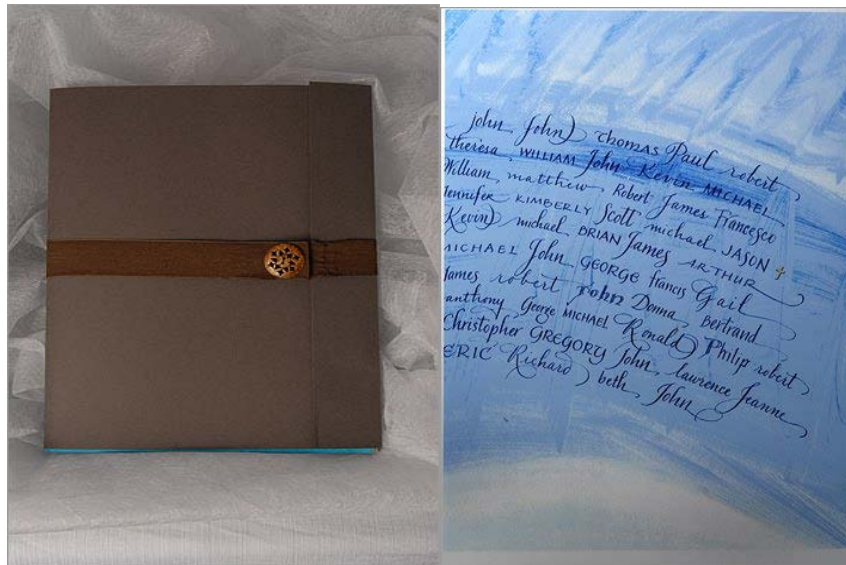 john John THOMAS Paul robert
theresa WILLIAM John Kevin MICHAEL
William matthew Robert James Francesco
Jennifer KIMBERLY Scott michael JASON
Kevin michael BRIAN James ARTHUR
MICHAEL John GEORGE francis Gail
James robert John Donna Bertrand
anthony George MICHAEL Ronald Philip robert
Christopher GREGORY John lawrence Jeanne
ERIC Richard beth John